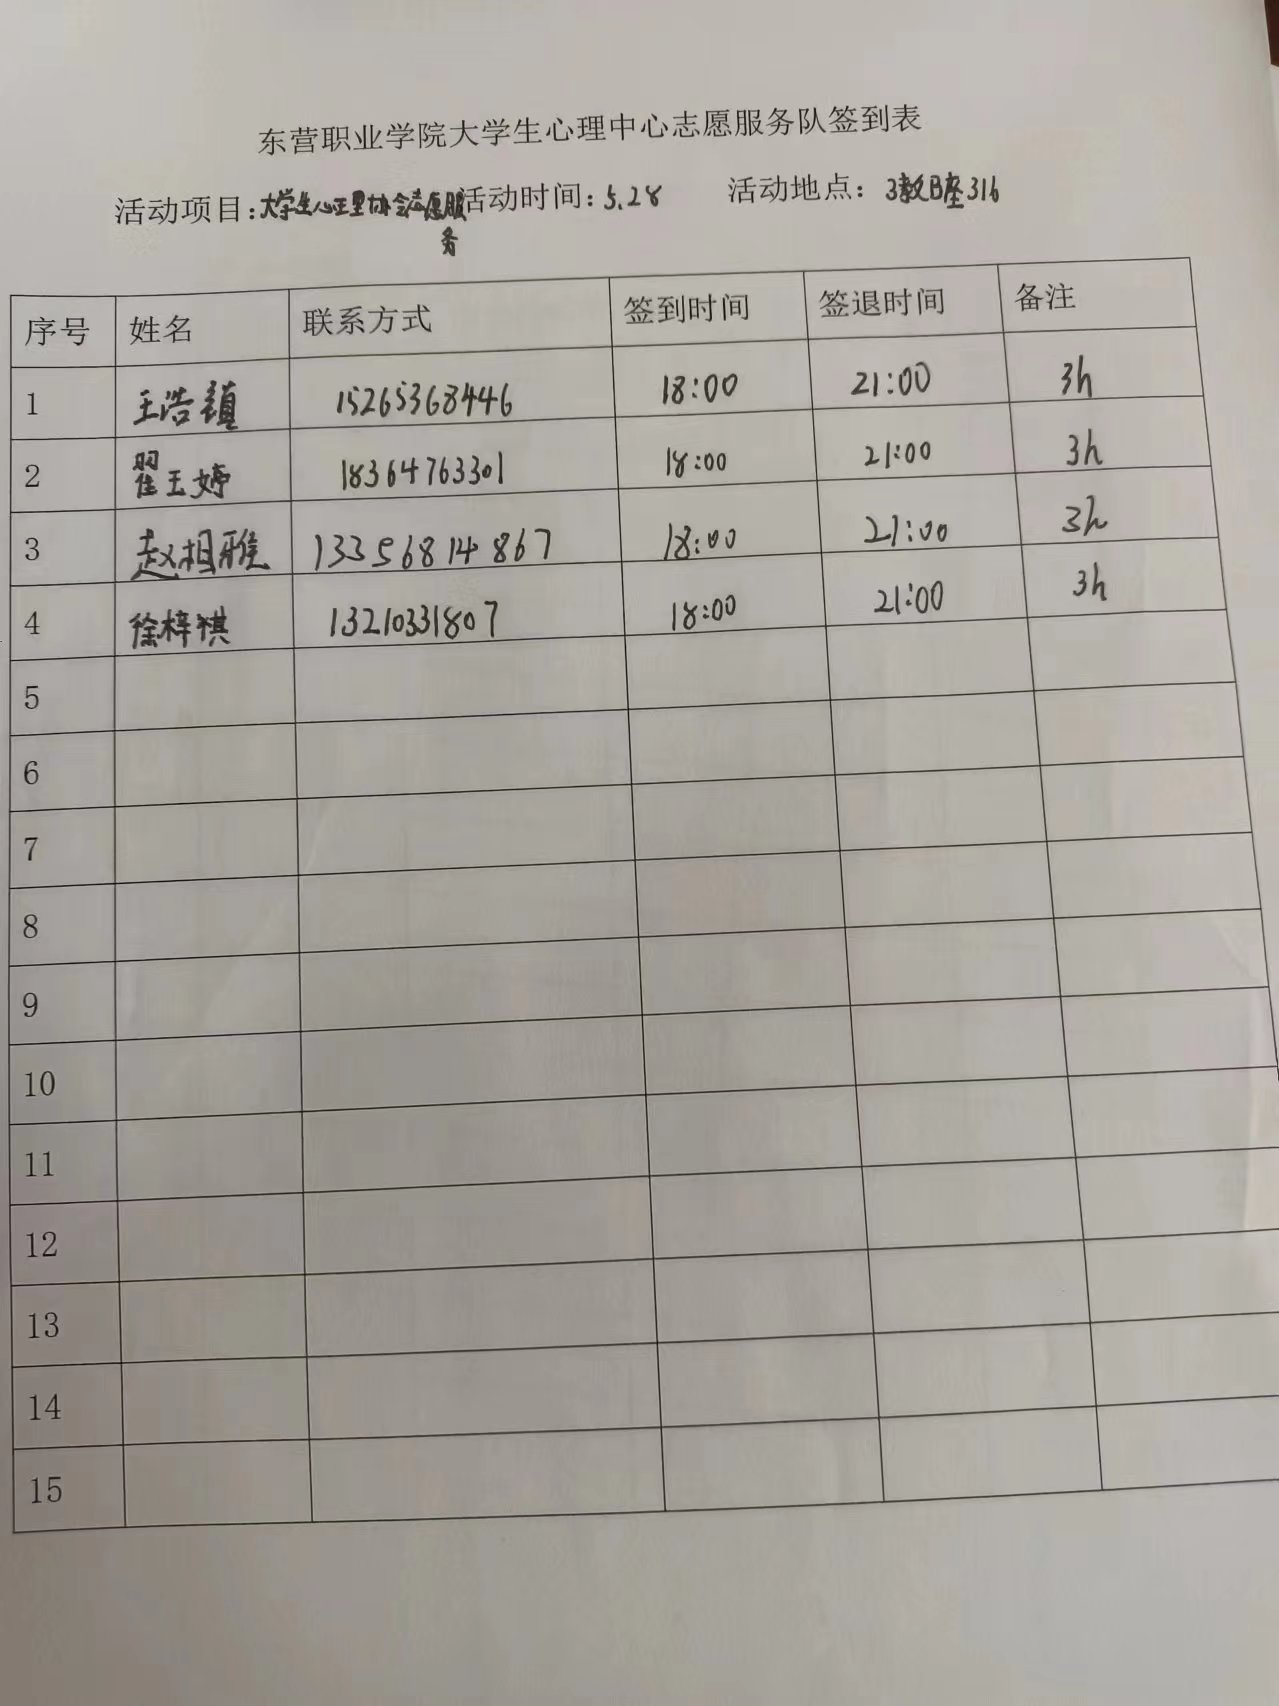 东营职业学院大学生心理中心志愿服务队签到表
活动项目:大学生心理协会志愿服务 活动时间:5.28 活动地点:3教B座316
序号 姓名 联系方式 签到时间 签退时间 备注
1 王浩 15265368446 18:00 21:00 3h
2 翟玉婷 18364763301 18:00 21:00 3h
3 赵相雅 13356814867 18:00 21:00 3h
4 徐梓祺 13210331807 18:00 21:00 3h
5
6
7
8
9
10
11
12
13
14
15